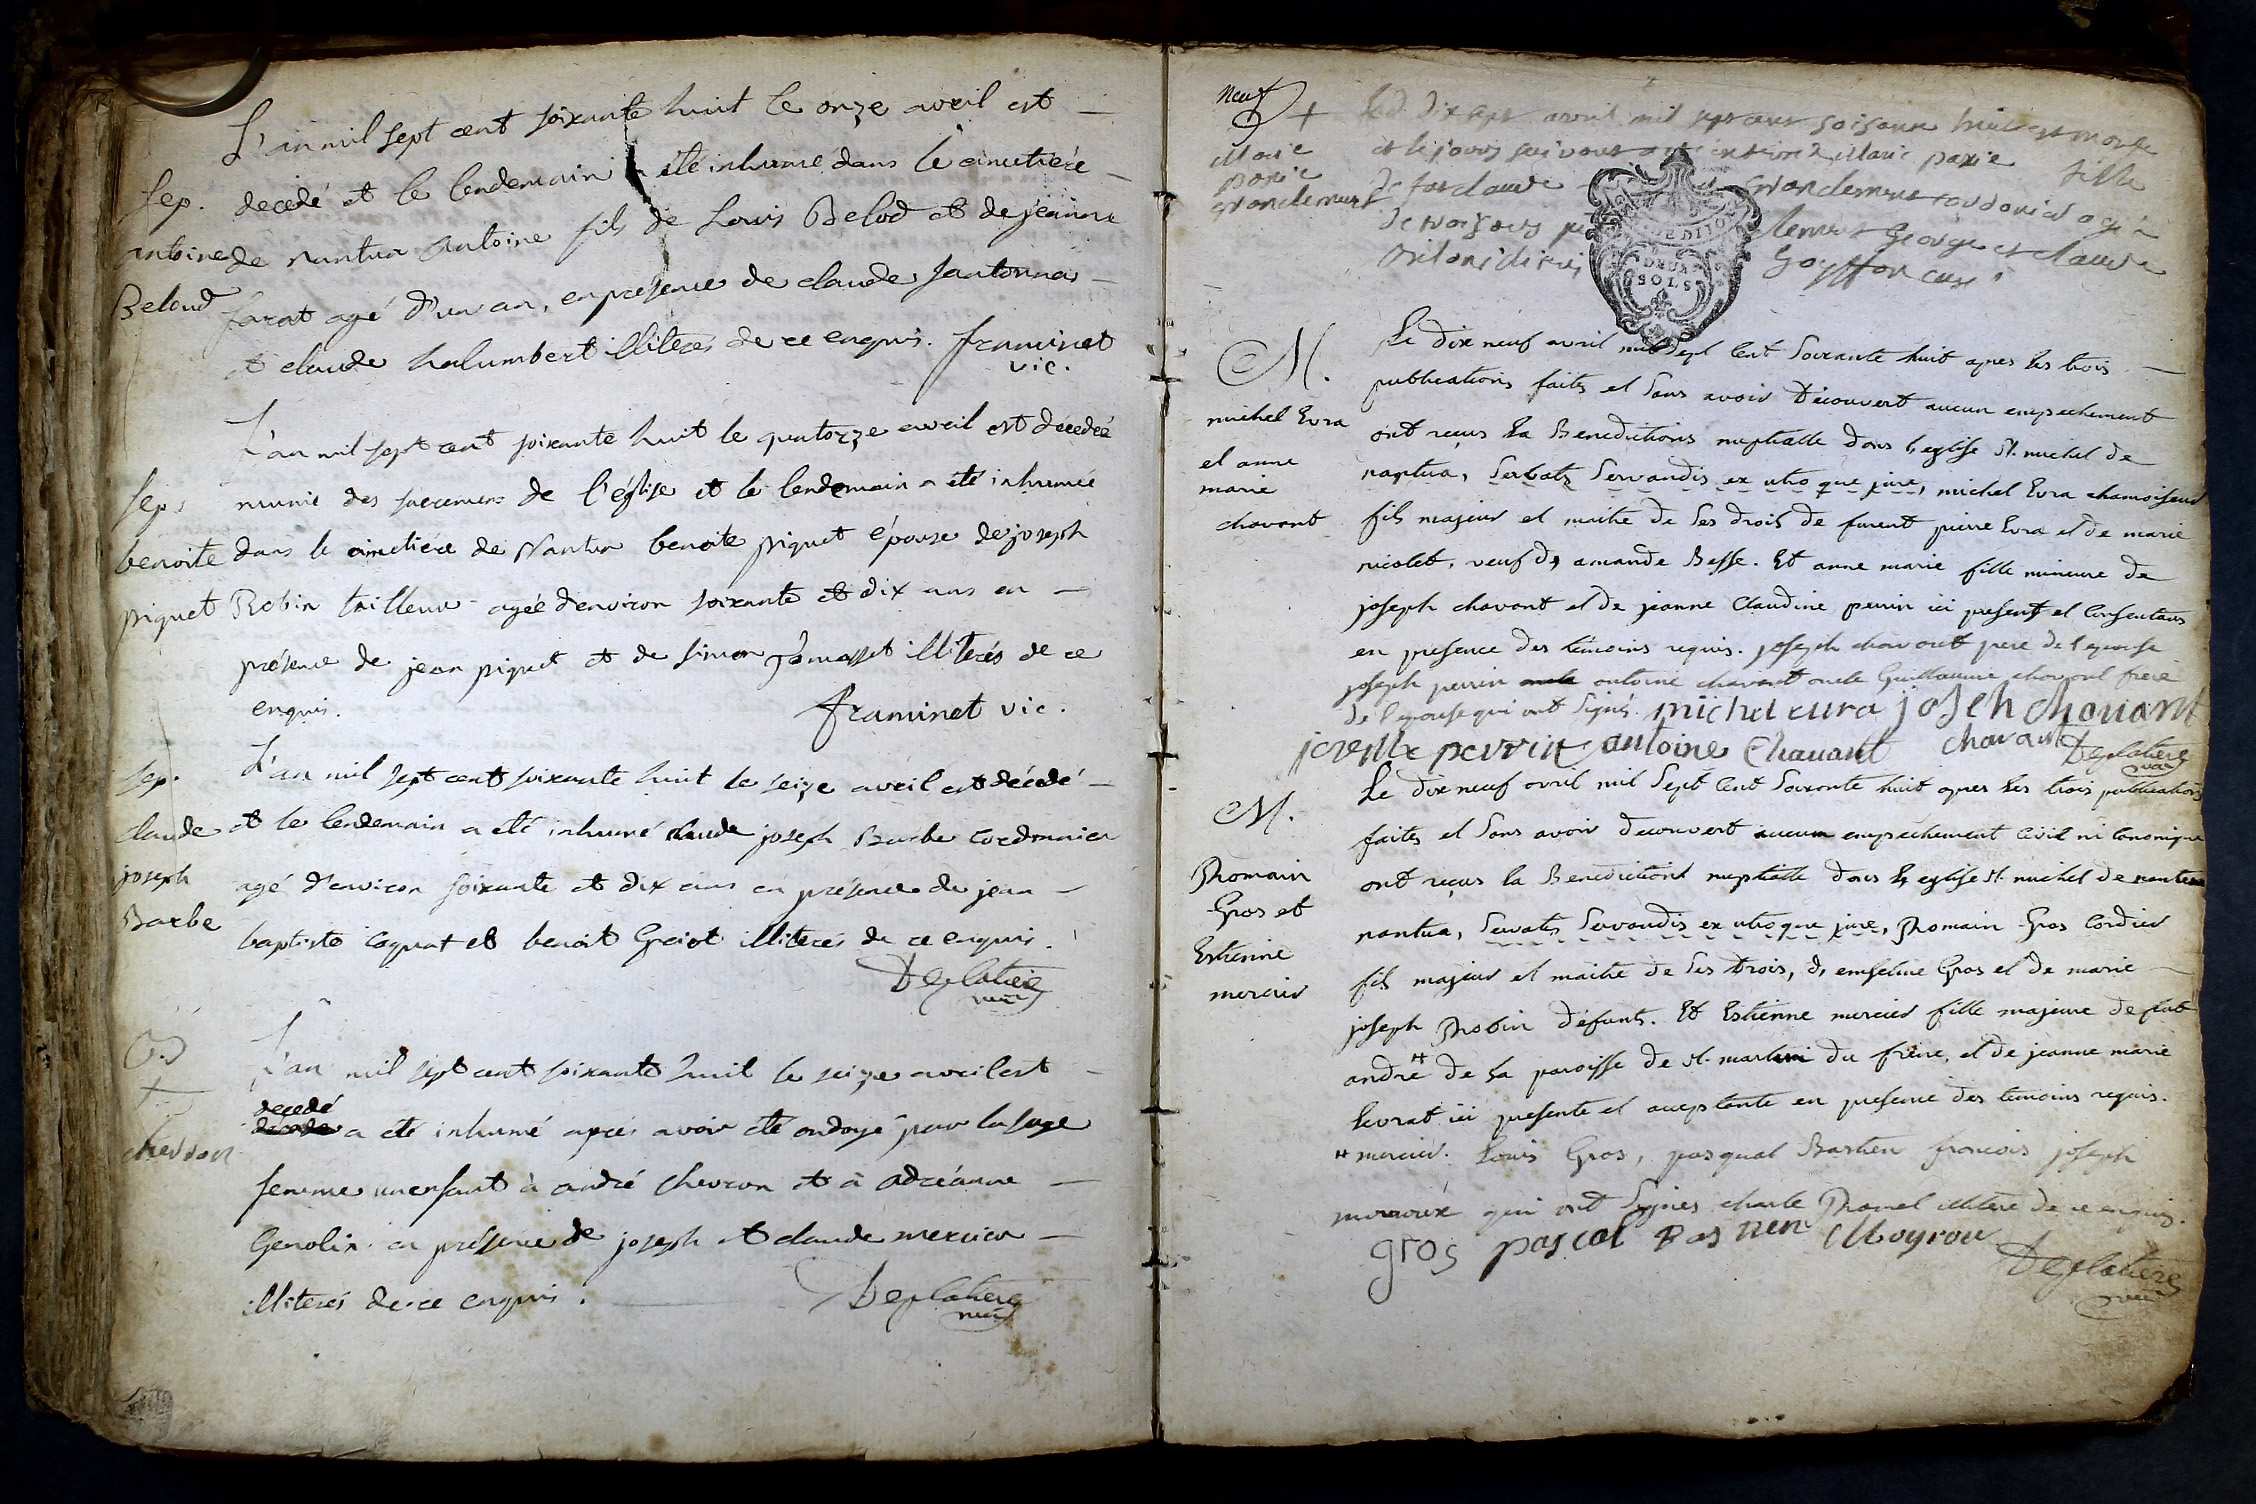 L'an mil sept cent soixante huit le onze avril est
Sep. decedé et le lendemain a été inhumé dans le cimetiere
antoine de nantua Antoine fils de Louis Belod et de jeanne
Beloud farat agé d'un an, en présence de claude
et claude halumbert illiterés de ce enquis. framinet
vic.
L'an mil sept cent soixante huit le quatorze avril est décedée
Sep. munie des sacremens de l'église et le lendemain a été inhumée
benoite dans le cimetiere de Nantua benoite piquet épouse de joseph
piquet Robin tailleur agée d'environ soixante et dix ans en
présence de jean piquet et de simon illiterés de ce
enquis. framinet vic.
Sep. L'an mil sept cent soixante huit le seize avril est décedé
claude et le lendemain a été inhumé claude joseph Barbe cordonnier
joseph agé d'environ soixante et dix ans en présence de jean
Barbe baptiste coquat et benoit Greiot illiterés de ce enquis.
Deplatiere
vic
L'an mil sept cent soixante huit le seize avril est
decedé
a été inhumé aprés avoir été ondoyé par la sage
chevron
femme un enfant à andré Chevron et à adréanne
Genolin en présence de joseph et claude mercier
illiterés de ce enquis. Deplatiere
vic
neuf
avril mil sept cens soisante huit est morte
Marie et le jours suivant marie paxie fille
paxie de claude Grandclement cordonier agé
grandclement de George et claude
Goyffon curé
DEUX
SOLS
M. Le dix neuf avril mil Sept Cent Soixante huit apres les trois
publications faites et Sans avoir Découvert aucun empechement
michel Evra ont reçus la Benedictions nuptialle dans l'eglise St. michel de
et anne nantua, Servatis Servandis ex utroque jure, michel Evra chamoiseur
marie fils majeur et maitre de Ses droits de furent pierre Evra et de marie
chavant nicolet, veuf d, amande Besse. Et anne marie fille mineure de
joseph chavant et de jeanne Claudine perrin ici present et Consentans
en presence des témoins requis. joseph chavant pere de l'epouse
joseph perrin antoine chavant oncle Guillaume chavant frere
de l'epouse qui ont Signés. michel eura joseh chouant
perrin antoine Chauant chavant Deplatiere
vic
M. Le dix neuf avril mil Sept Cent Soixante huit apres les trois publications
faites et Sans avoir decouvert aucun empechement Civil ni Canonique
Rhomain ont reçus la Benediction nuptialle dans l'eglise St. michel de nantua
Gros et nantua, Servatis Servandis ex utroque jure, Rhomain Gros Cordier
Estienne fils majeur et maitre de Ses drois, d, emseline Gros et de marie
mercier joseph Robin défunts. Et Estienne mercier fille majeure de feut
andré # de la paroisse de St. martin du frene, et de jeanne marie
Levrat ici presente et acceptante en presence des temoins requis.
# mercier. Louis Gros, pasqual Bastien francois joseph
qui ont Signés charle illitere de ce enquis.
gros pascal Bastien Moyroux
Deplatiere
vic